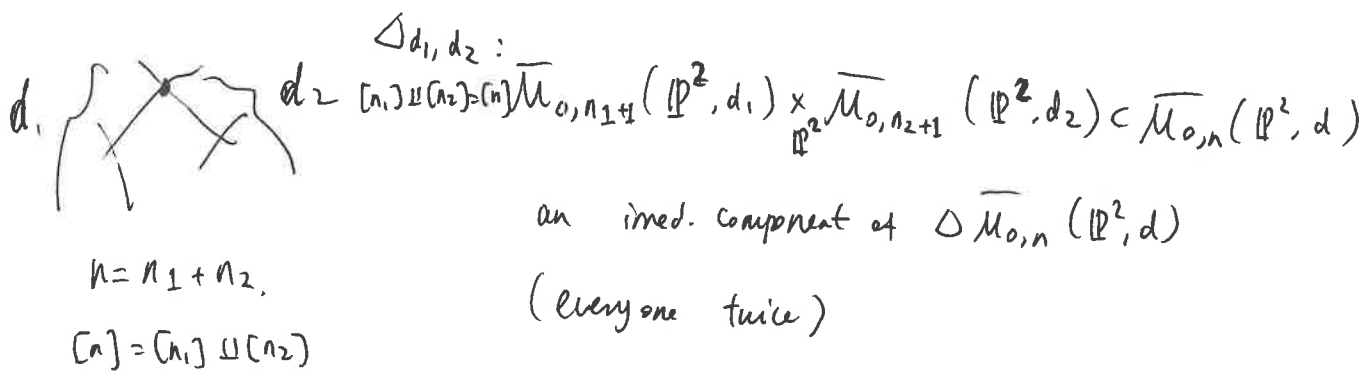 Δ d₁, d₂ :
d₁ d₂ [n₁]⊔[n₂]=[n] M̄₀,ₙ₁₊₁(ℙ², d₁) ×_ℙ² M̄₀,ₙ₂₊₁(ℙ², d₂) ⊂ M̄₀,ₙ(ℙ², d)
an irred. component of Δ M̄₀,ₙ(ℙ², d)
n = n₁ + n₂.
(every one twice)
[n] = [n₁] ⊔ [n₂]